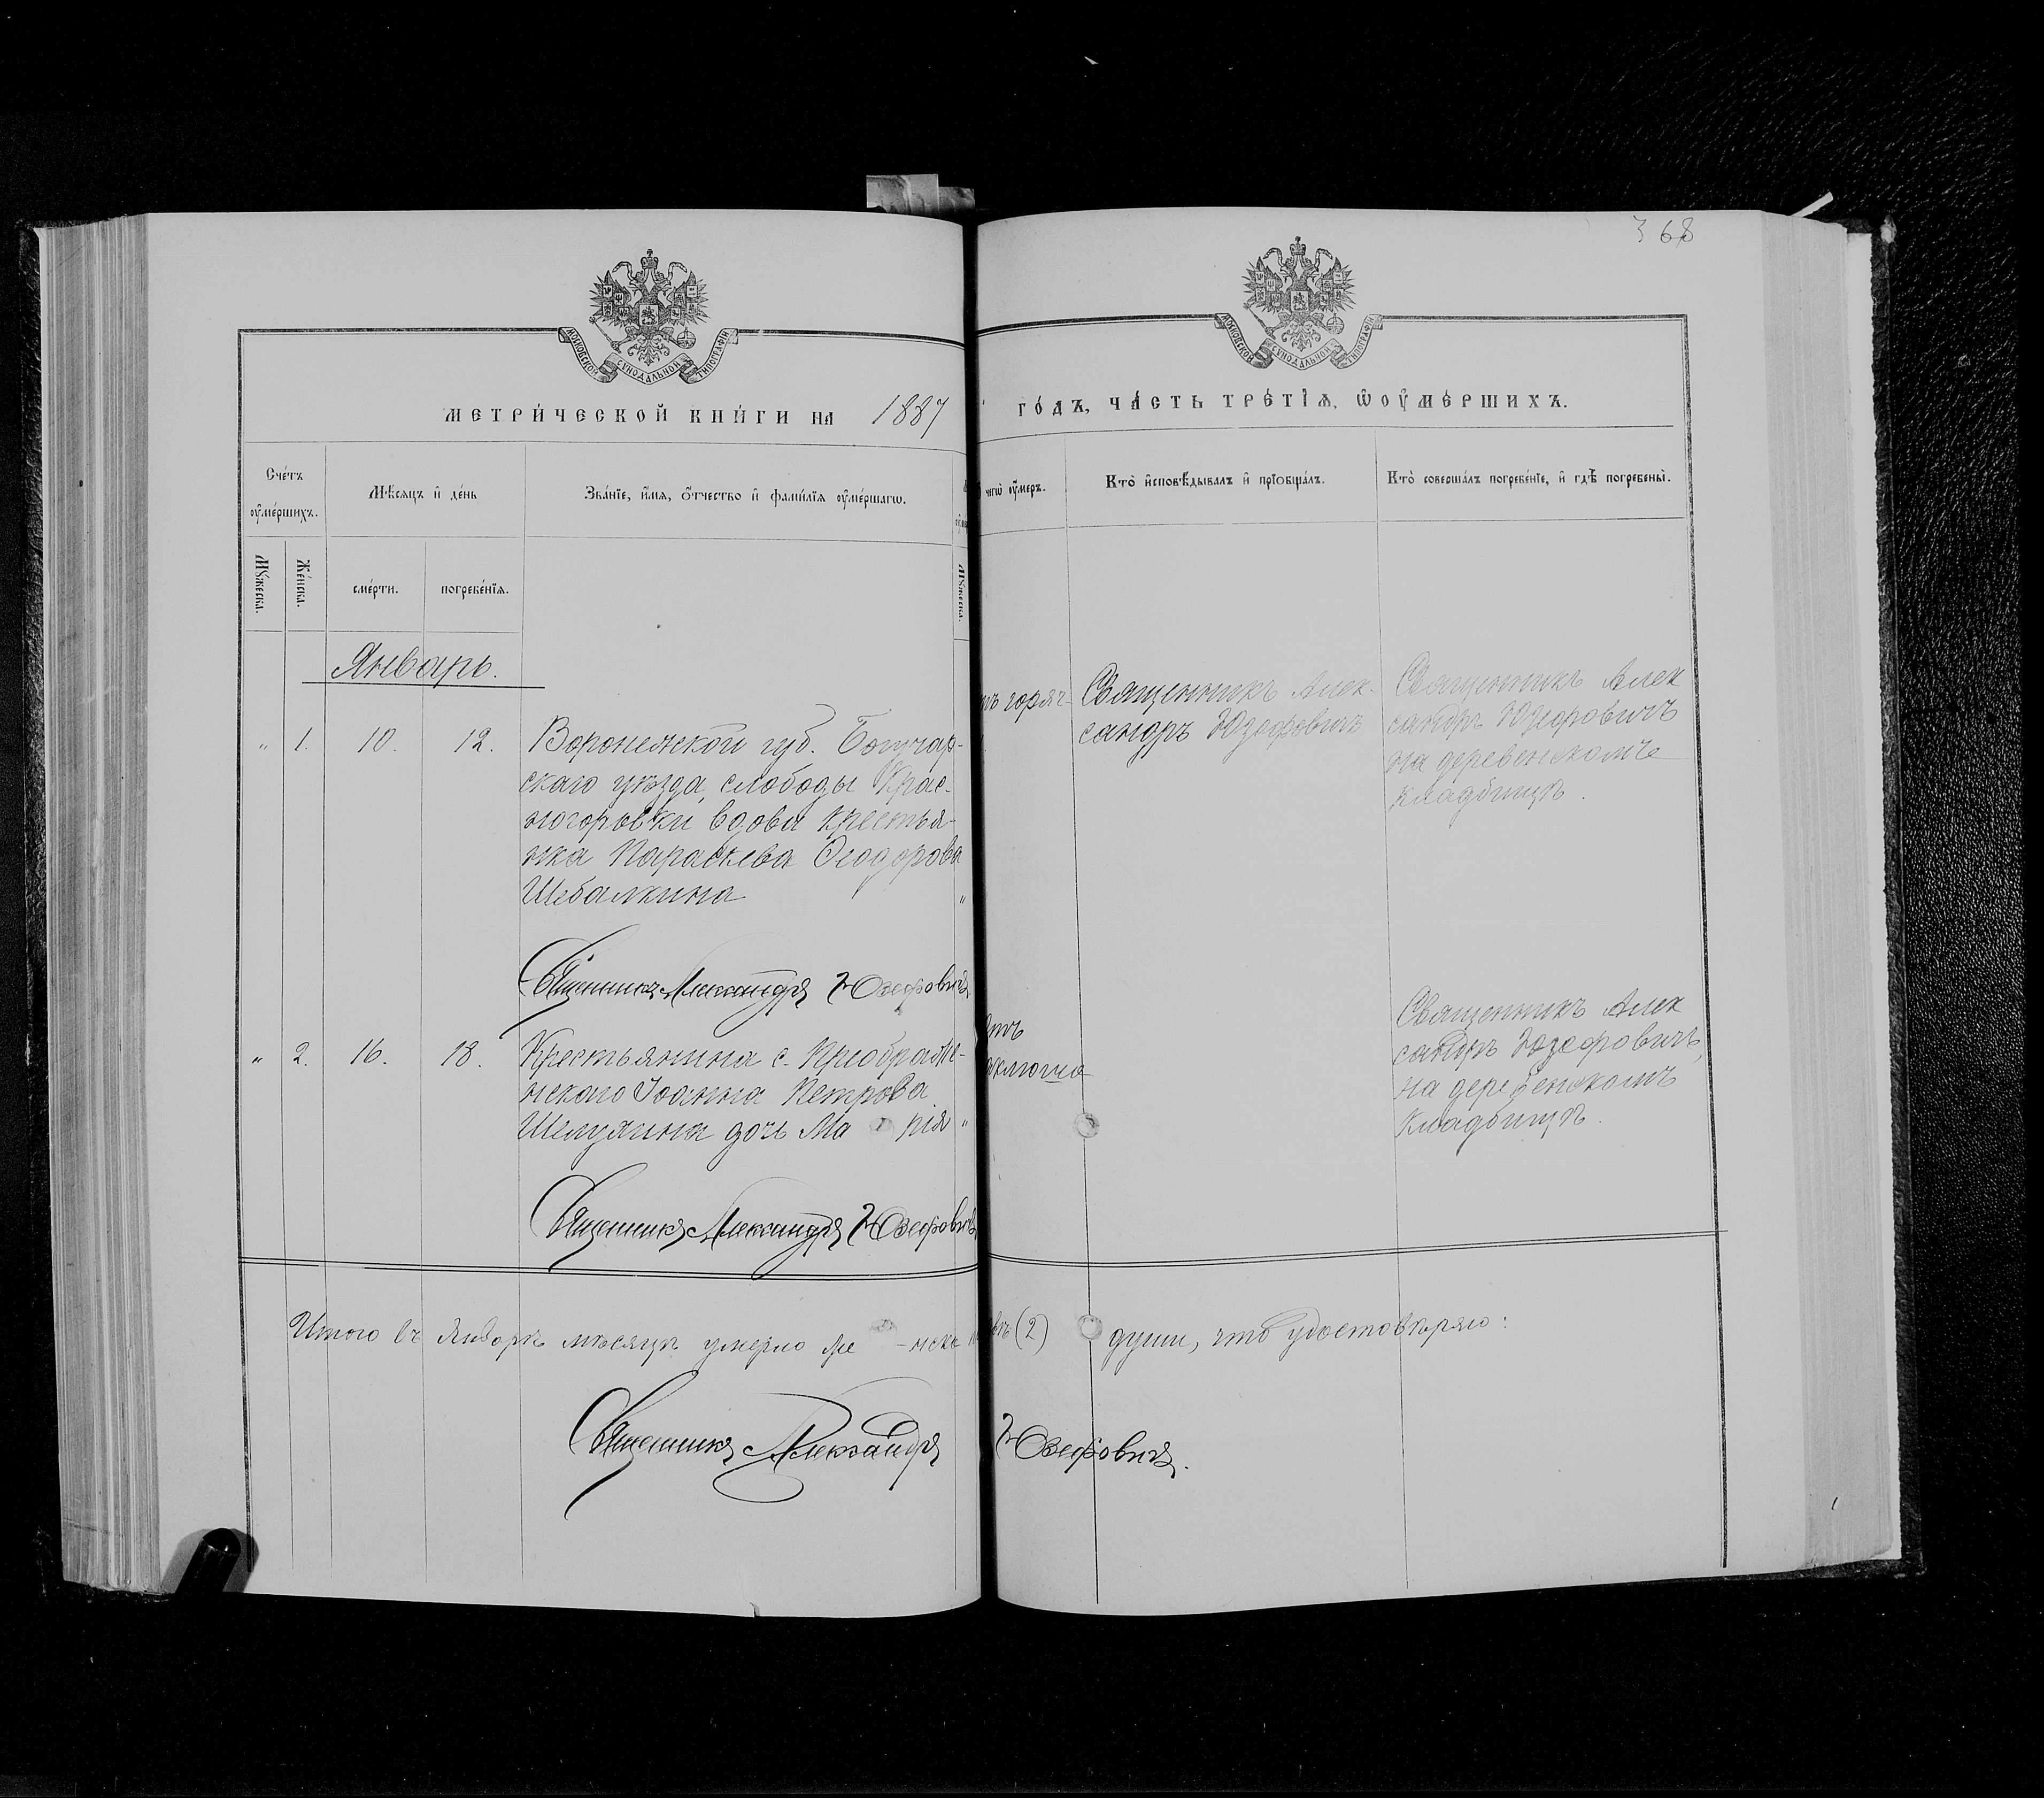 368
МОСКОВСКОЙ СѴНОДАЛЬНОЙ ТИПОГРАФІИ
МОСКОВСКОЙ СѴНОДАЛЬНОЙ ТИПОГРАФІИ
МЕТРИ́ЧЕСКОЙ КНИ́ГИ НА 1887 ГО́ДЪ, ЧА́СТЬ ТРЕ́ТІѦ, Ѡ ОУМЕ́РШИХЪ.
Сче́тъ оуме́ршихъ.
Мѣ́сяцъ и де́нь
Зва́нїе, и́мѧ, о́тчество и фами́лїѧ оуме́ршагѡ.
чегѡ̀ оу́меръ.
Кто̀ исповѣ́дывалъ и прїѡбща́лъ.
Кто̀ соверша́лъ погребе́нїе, и гдѣ̀ погребены̀.
Мꙋ́жеска.
Же́нска.
сме́рти.
погребе́нїѧ.
Мꙋ́жеска.
Январь.
" 1. 10. 12.
Воронежской губ. Богучар-
скаго уѣзда, слободы Крас-
ногоровки вдова крестья-
нка Параскева Ѳеодорова
Шебалкина "
горяч-
Священникъ Алек-
сандръ Юзефовичъ
Священникъ Алек
сандръ Юзефовичъ
на деревенскомъ
кладбищѣ.
Священникъ Александръ Юзефовичъ
" 2. 16. 18.
Крестьянина с. Преображе-
нскаго Іоанна Петрова
Шелудяина дочь Ма рія "
Священникъ Алек
сандръ Юзефовичъ,
на деревенскомъ
кладбищѣ.
Священникъ Александръ Юзефовичъ
Итого въ Январѣ мѣсяцѣ умерло же -нска (2) души, что удостовѣряю:
Священникъ Александръ Юзефовичъ.